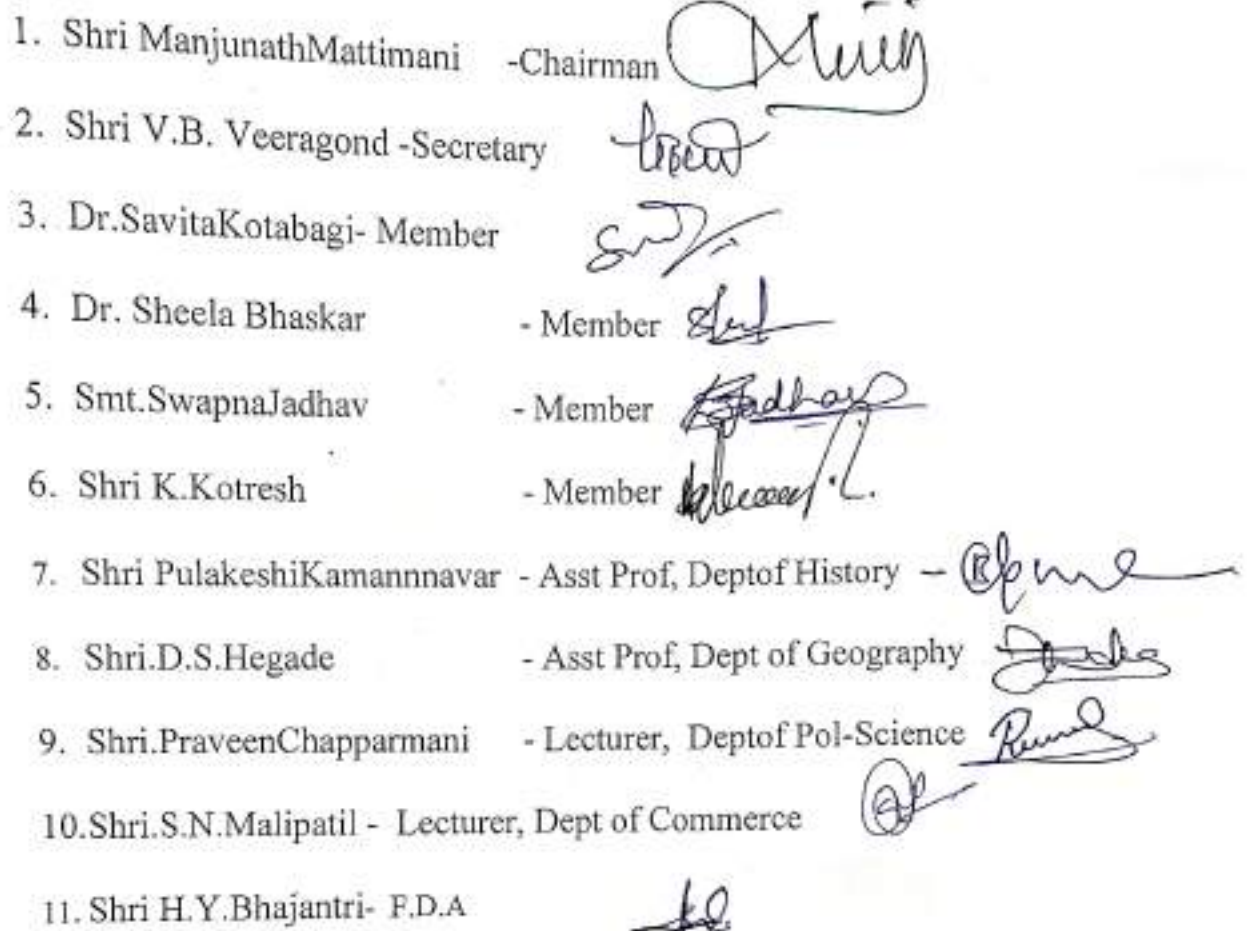 1. Shri ManjunathMattimani -Chairman
2. Shri V.B. Veeragond -Secretary
3. Dr.SavitaKotabagi- Member
4. Dr. Sheela Bhaskar - Member
5. Smt.SwapnaJadhav - Member Jadhav
6. Shri K.Kotresh - Member
7. Shri PulakeshiKamannnavar - Asst Prof, Deptof History –
8. Shri.D.S.Hegade - Asst Prof, Dept of Geography
9. Shri.PraveenChapparmani - Lecturer, Deptof Pol-Science
10.Shri.S.N.Malipatil - Lecturer, Dept of Commerce
11. Shri H.Y.Bhajantri- F.D.A